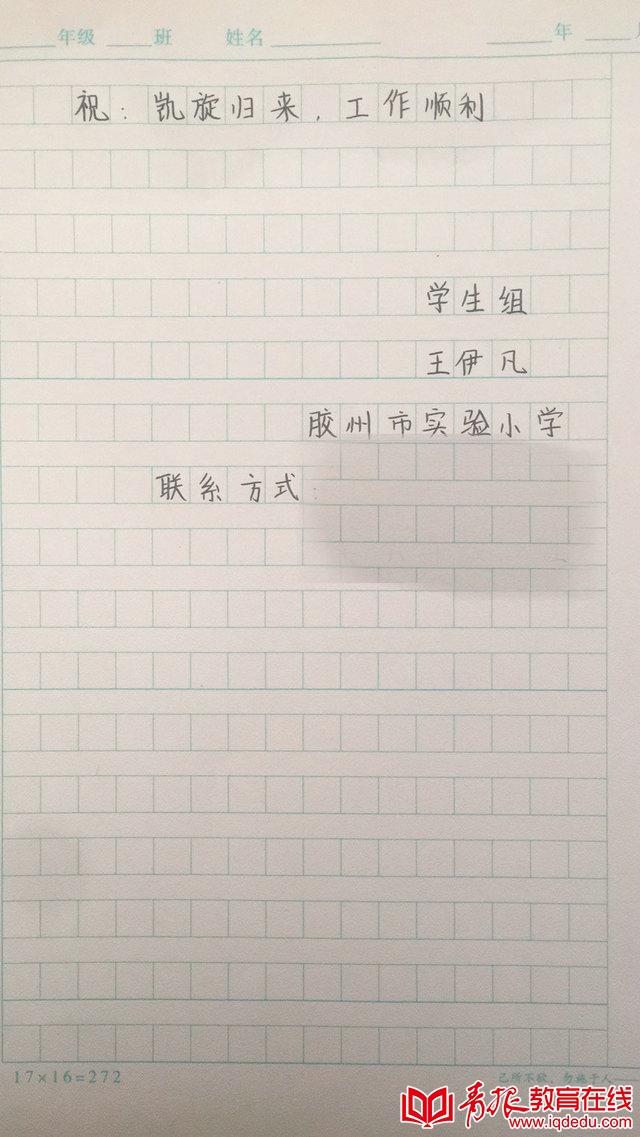 年级 班 姓名 年
祝：凯旋归来，工作顺利
学生组
王伊凡
胶州市实验小学
联系方式：
17×16=272
己所不欲，勿施于人
青报教育在线
www.iqdedu.com